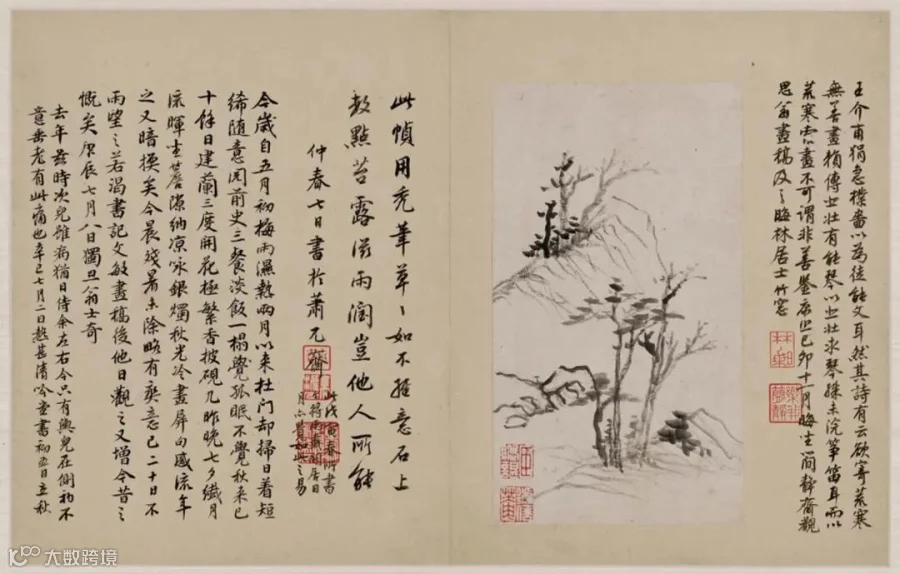 王介甫狷急樸嗇以為徒能文耳然其詩有云欲寄荒寒
無善畫賴傳悲壯有能琴以悲壯求琴殊未浣箏笛耳而以
荒寒索畫不可謂非善鑒者也己卯十一月晦坐澗靜齋觀
思翁畫稿及之晦林居士竹窗
此幀用禿筆草草如不經意石上
數點苔露滋雨潤豈他人所能
仲春七日書於蕭兀齋
此戊寅春所書
齋閒居日
月不覺如此之易
今歲自五月初梅雨濕熱兩月以來杜門却掃日着短
絺隨意閱前史三餐淡飯一榻覺孤眠不覺秋來已
十餘日建蘭三度開花極繁香披硯几昨晚七夕纖月
流暉坐簷隙納凉咏銀燭秋光冷畫屏句感流年
之又暗換矣今晨殘暑未除略有爽意已二十日不
雨望之若渴書記文敏畫稿後他日觀之又增今昔之
慨矣庚辰七月八日獨旦翁士奇
去年茲時次兒雖病猶日侍余左右今只有輿兒在側初不
意垂老有此痛也辛巳七月二日清吟並書初五日立秋
大数跨境